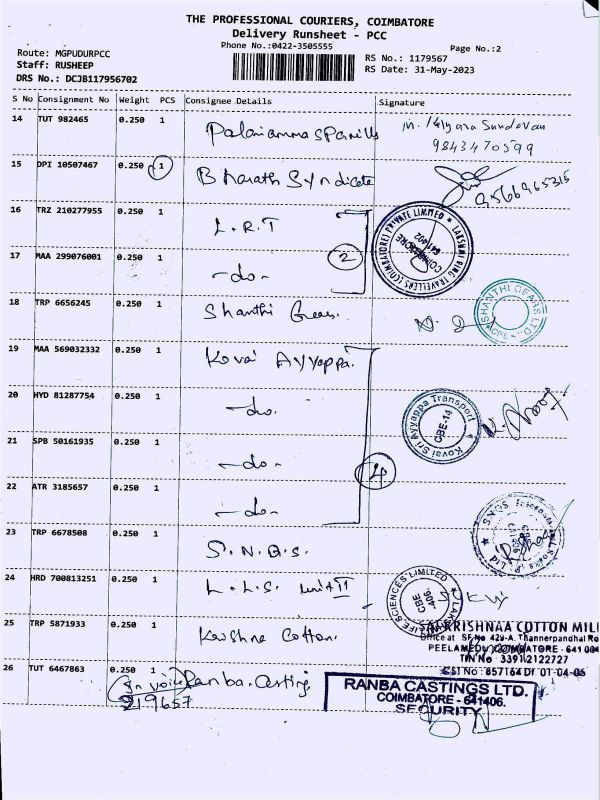 THE PROFESSIONAL COURIERS, COIMBATORE
Delivery Runsheet - PCC
Phone No.:0422-3505555
Page No.:2
Route: MGPUDURPCC
Staff: RUSHEEP
DRS No.: DCJB117956702
RS No.: 1179567
RS Date: 31-May-2023
S No Consignment No Weight PCS Consignee Details Signature
14 TUT 982465 0.250 1
9843470599
15 DPI 10507467 0.250 1 Bharath Syndicate
9566965315
16 TRZ 210277955 0.250 1 L.R.T
LAKSHMI RING TRAVELLERS (COIMBATORE) PRIVATE LIMITED
COIMBATORE
641402
2
17 MAA 299076001 0.250 1 -do-
18 TRP 6656245 0.250 1 Shanthi Gears.
SHANTHI GEARS LTD.
19 MAA 569032332 0.250 1 Kovai Ayyappa.
20 HYD 81287754 0.250 1 -do.
Kovai Sri Ayyappa Transport
CBE-14
21 SPB 50161935 0.250 1 -do-
4
22 ATR 3185657 0.250 1 -do-
23 TRP 6678508 0.250 1 S.N.Q.S.
SNQS International Socks
24 HRD 700813251 0.250 1 L.L.S. unit II
LIFE SCIENCES LIMITED
CBE
406
25 TRP 5871933 0.250 1 Krishna Cotton.
KRISHNAA COTTON MILL
Office at SF No 429-A. Thannerpandhal Ro
PEELAMEDU, COIMBATORE - 641 004
TIN No 33912122727
CST No : 857164 Df 01-04-06
26 TUT 6467863 0.250 1 Ranba. Casting
Invoice
219657
RANBA CASTINGS LTD.
COIMBATORE - 641406.
SECURITY